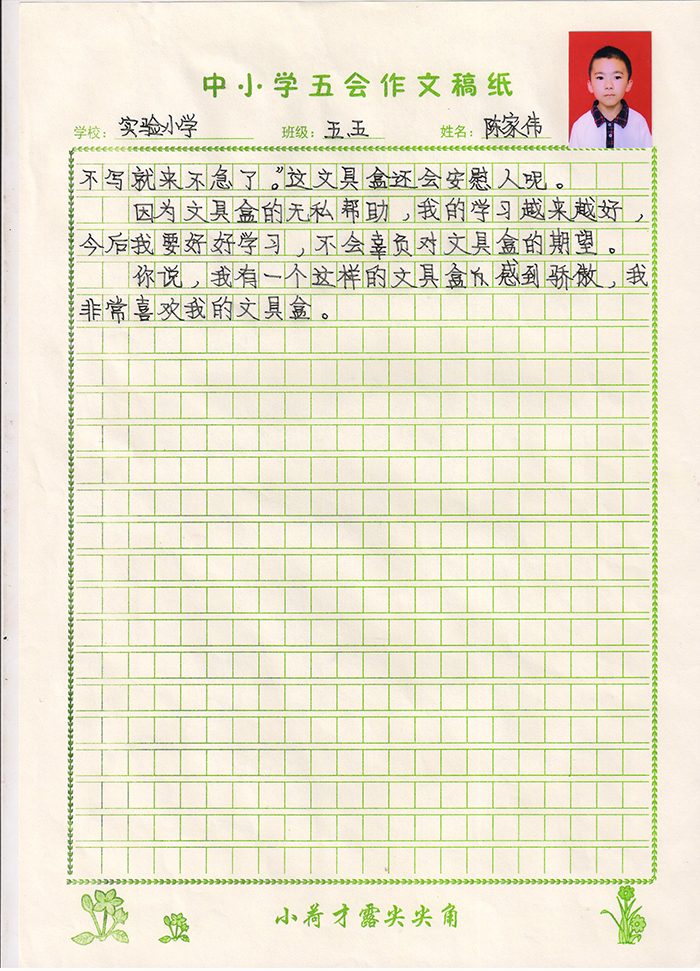 中小学五会作文稿纸
学校：实验小学 班级：五五 姓名：陈家伟
不写就来不急了。”这文具盒还会安慰人呢。
因为文具盒的无私帮助，我的学习越来越好，
今后我要好好学习，不会辜负对文具盒的期望。
你说，我有一个这样的文具盒 感到骄傲，我
非常喜欢我的文具盒。
小荷才露尖尖角